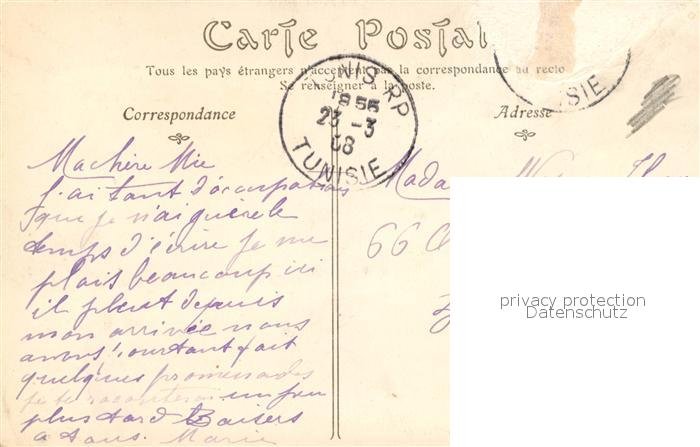 Carte Postal
Tous les pays étrangers n'acceptent pas la correspondance au recto
Se renseigner à la poste.
Correspondance
Adresse
TUNIS RP
1956
23 -3
08
TUNISIE
SIE
Ma chère Mie
J'ai tant d'occupations
que je n'ai guère le
temps d'écrire je me
plais beaucoup ici
il pleut depuis
mon arrivée nous
avons pourtant fait
quelques promenades
je te raconterai un peu
plus tard Baisers
a tous. Marie
Mada
66
privacy protection
Datenschutz